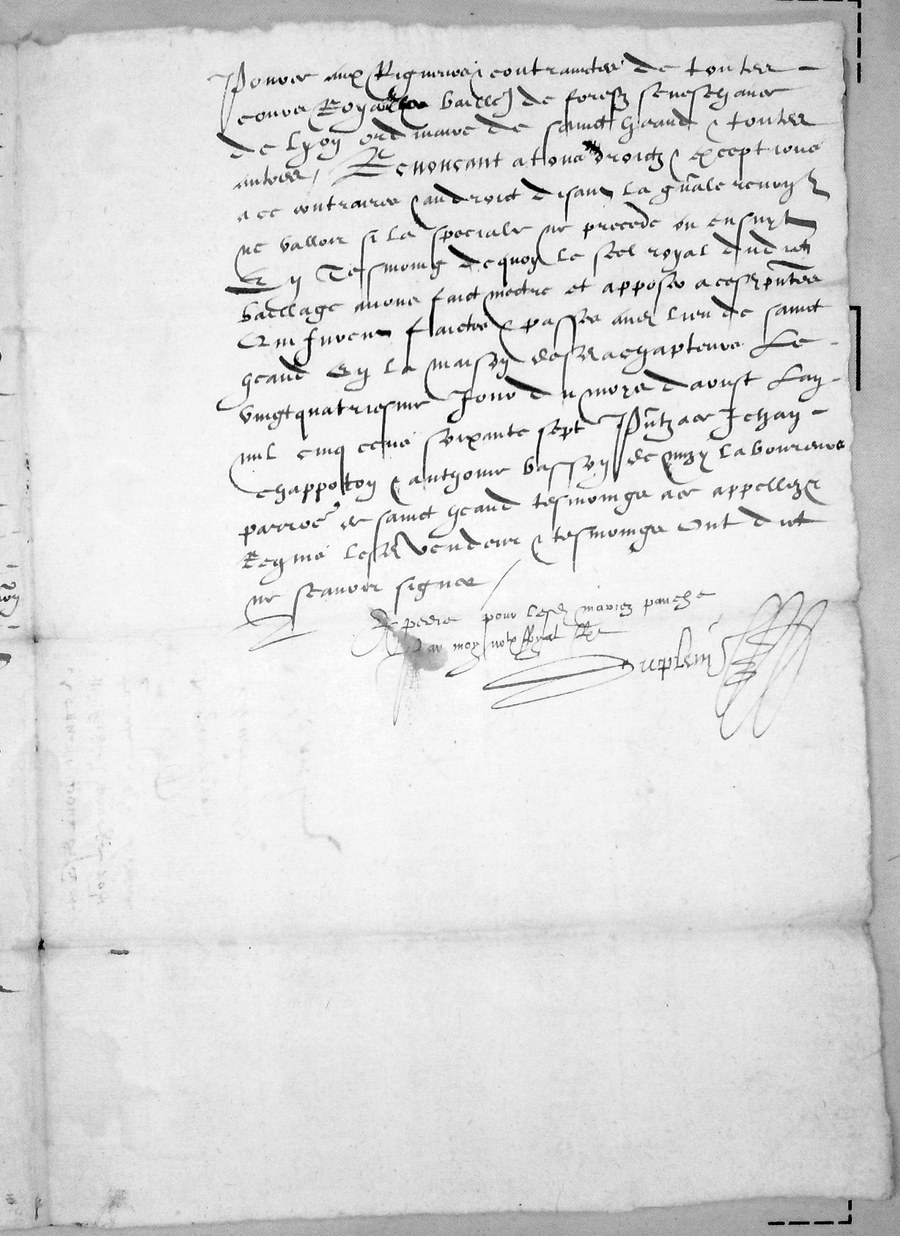 Pouvoir aux Rigueurs contrainctes de toutes
cours Royalles bailla de forestz seneschaucee
de lyon ordinaire de sainct heand & toutes
autres / Renoncant a tous droictz & exceptions
a ce contraires & au droict disant la gnãle renon
ne valloir si la speciale ne precede ou ensuyt
En Tesmoing de quoy le scel royal dudict
baillage avons faict mectre et apposer a ces pñtes
Qui furent faictes & passees aud lieu de sainct
heand En la maison desd achapteurs Le
vingtquatriesme Jour du moys d'aoust Lan
mil cinq cens soixante sept Pñtz ad ce Jehan
chappoton & anthoine basson de laboureurs
parroe de sainct heand tesmoings ad ce appellez &
Requis lesd vendeur & tesmoings ont dict
ne scavoir signer
Expedie pour lesd mariez
Par moy notre Royal
Duplein